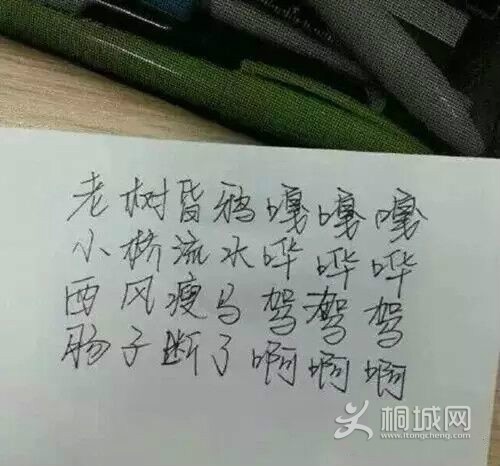 老树昏鸦嘎嘎嘎
小桥流水哗哗哗
西风瘦马驾驾驾
肠子断了啊啊啊
桐城网
www.itongcheng.com